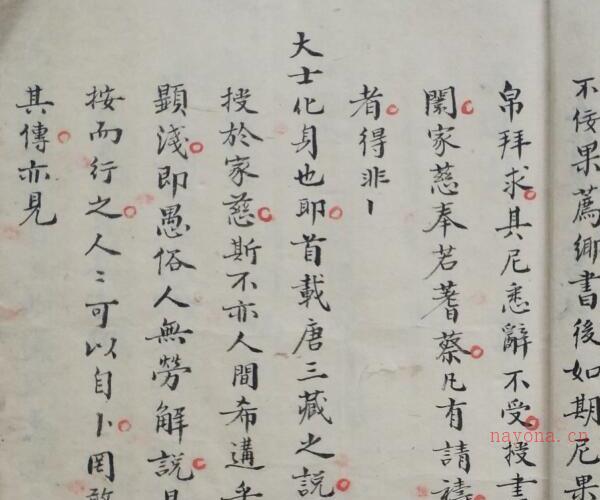 不佞果薦鄉書後如期尼果
帛拜求其尼悉辭不受授書
闈家慈奉若蓍蔡凡有請禱
者得非
大士化身也即首載唐三藏之說
授於家慈斯不亦人間希遘乎
顯淺即愚俗人無勞解說
按而行之人〻可以自卜罔敢
其傳亦見
nayona.cn